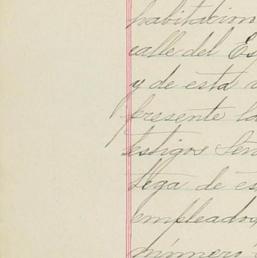 habitacion
calle del Es
y de esta v
presente la
testigos Don
tega de es
empleados
número